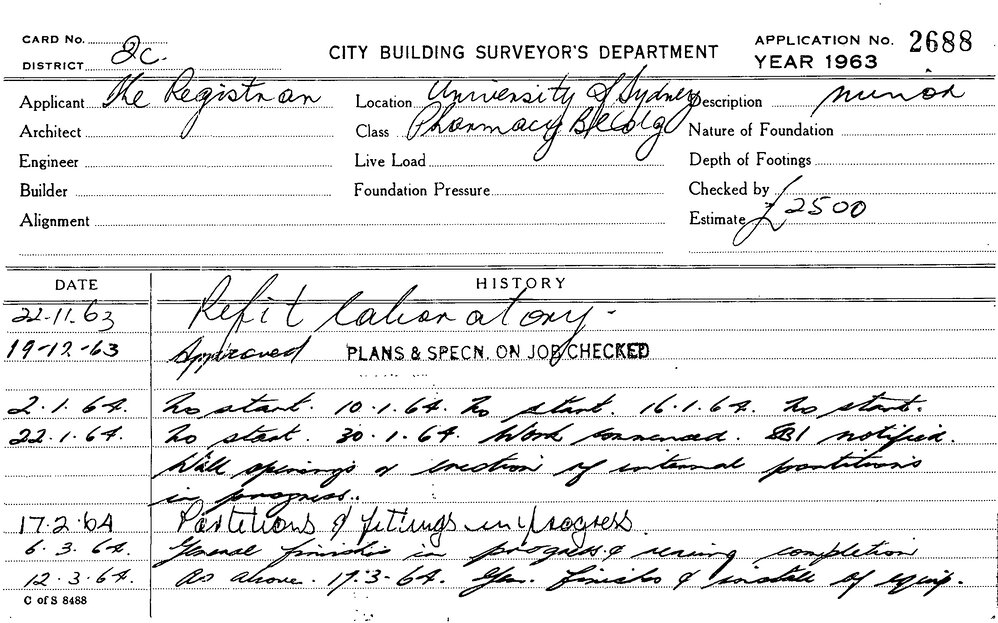 CARD No.
DISTRICT 2c.
CITY BUILDING SURVEYOR'S DEPARTMENT
APPLICATION No. 2688
YEAR 1963
Applicant The Registrar
Location University of Sydney
Description minor
Architect
Class Pharmacy Bldg
Nature of Foundation
Engineer
Live Load
Depth of Footings
Builder
Foundation Pressure
Checked by
Alignment
Estimate £2500
DATE HISTORY
22.11.63 Refit laboratory-
19-12-63 Approved PLANS & SPECN. ON JOB CHECKED
2.1.64. No start. 10.1.64. No start. 16.1.64. No start.
22.1.64. No start. 30.1.64. Work commenced. notified.
Wall openings & erection of internal partitions
in progress.
17.2.64 Partitions & fittings in progress
6.3.64. General finishes in progress & nearing completion
12.3.64. As above. 17.3.64. Gen. finishes & install of equip.
C of S 8488